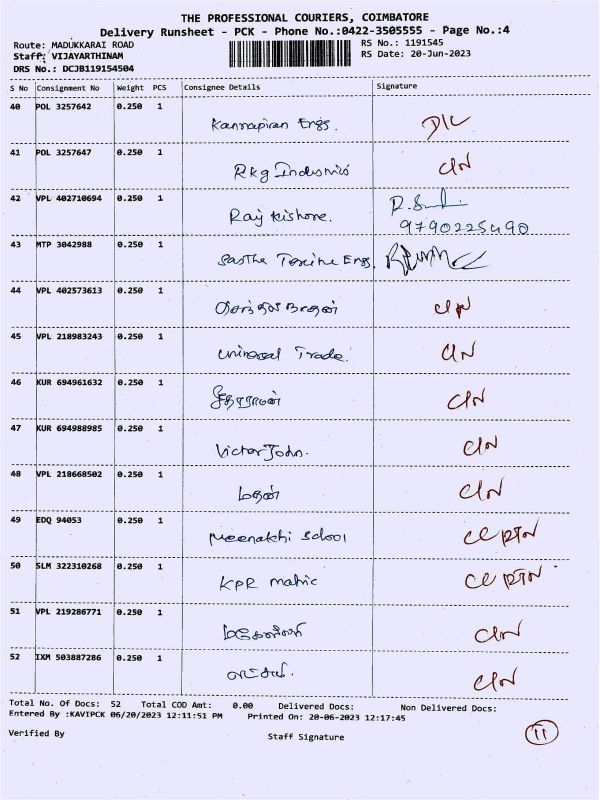 THE PROFESSIONAL COURIERS, COIMBATORE
Delivery Runsheet - PCK - Phone No.:0422-3505555 - Page No.:4
Route: MADUKKARAI ROAD RS No.: 1191545
Staff: VIJAYARTHINAM RS Date: 20-Jun-2023
DRS No.: DCJB119154504
S No Consignment No Weight PCS Consignee Details Signature
40 POL 3257642 0.250 1
Kannapiran Engs. D/L
41 POL 3257647 0.250 1
Rkg Industries C/N
42 VPL 402710694 0.250 1
Raj Kishore. 9790225490
43 MTP 3042988 0.250 1
Sastha Engs.
44 VPL 402573613 0.250 1
செந்தில்நாதன் C/N
45 VPL 218983243 0.250 1
Universal Trade. C/N
46 KUR 694961632 0.250 1
சீதாராமன் C/N
47 KUR 694988985 0.250 1
Victor John. C/N
48 VPL 218668502 0.250 1
மதன் C/N
49 EDQ 94053 0.250 1
Meenakhi School
50 SLM 322310268 0.250 1
KPR matric
51 VPL 219286771 0.250 1
C/N
52 IXM 503887286 0.250 1
C/N
Total No. Of Docs: 52 Total COD Amt: 0.00 Delivered Docs: Non Delivered Docs:
Entered By :KAVIPCK 06/20/2023 12:11:51 PM Printed On: 20-06-2023 12:17:45
Verified By Staff Signature
11